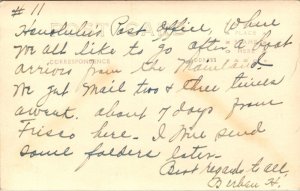 # 11
Honolulu's Post Office, Where
we all like to go after a boat
arrives from the Mainland
We get Mail two & three times
a week. about 7 days from
Frisco here. I'll send
some folders later.
Best regards to all,
POST CARD
CORRESPONDENCE
ADDRESS
PLACE
STAMP
HERE